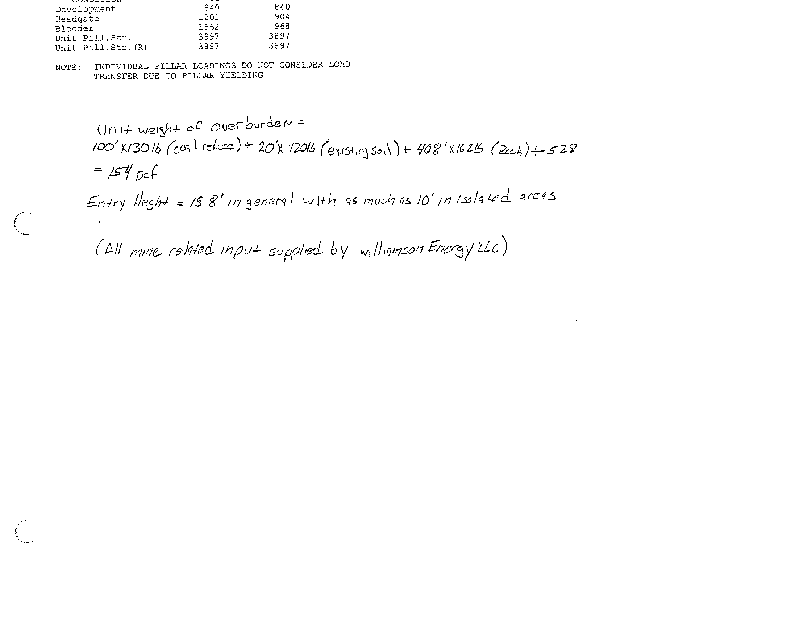 Development 840
Headgate 1201 904
Bleeder 968
Unit Pill.Str. 3897 3897
Unit Pill.Str.(R) 3897 3897
NOTE: INDIVIDUAL PILLAR LOADINGS DO NOT CONSIDER LOAD
TRANSFER DUE TO PILLAR YIELDING
Unit weight of overburden =
100' X 130 lb (coal refuse) + 20' X 120 lb (existing soil) + 408' X 162 lb (rock) ÷ 528
= 154 pcf
Entry Height = is 8' in general with as much as 10' in isolated areas
(All mine related input supplied by Williamson Energy LLC)